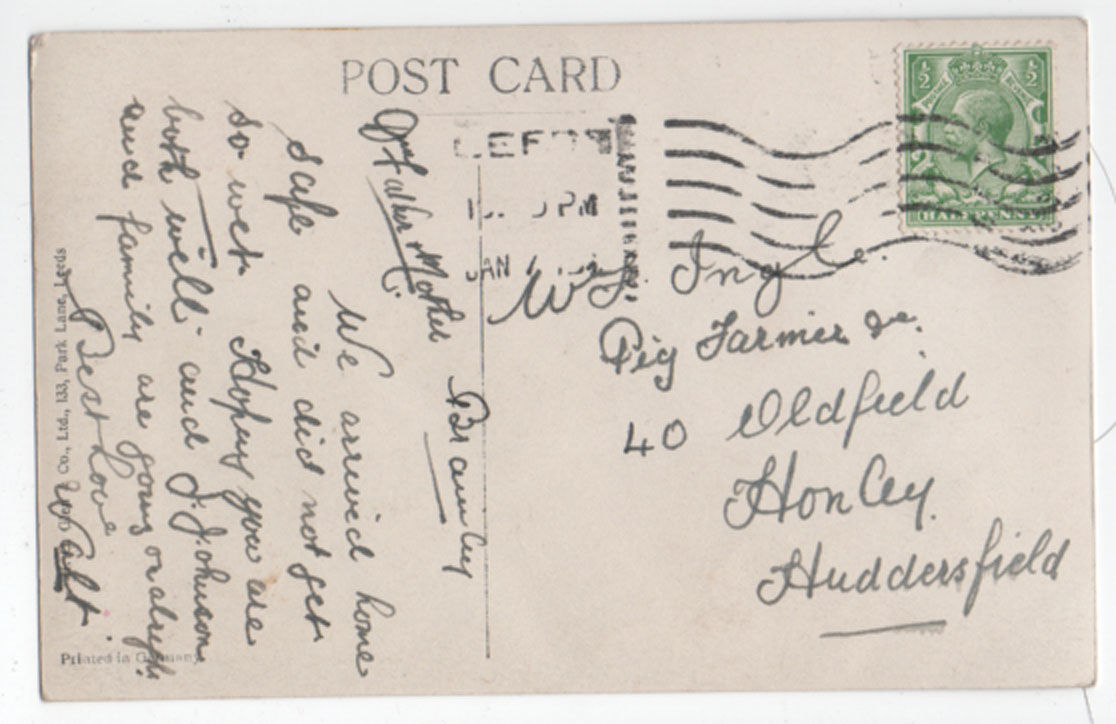 POST CARD
Bramley
Dr Father & Mother
We arrived home
safe and did not get
so wet. Hoping you are
both well and J. Johnson
and family are going on alright.
Best Love
Walt.
Co., Ltd., 133, Park Lane, Leeds
Printed in Germany
PM
JAN
½ ½
HALFPENNY
Ingle.
Pig Farmer &c.
40 Oldfield
Honley
Huddersfield